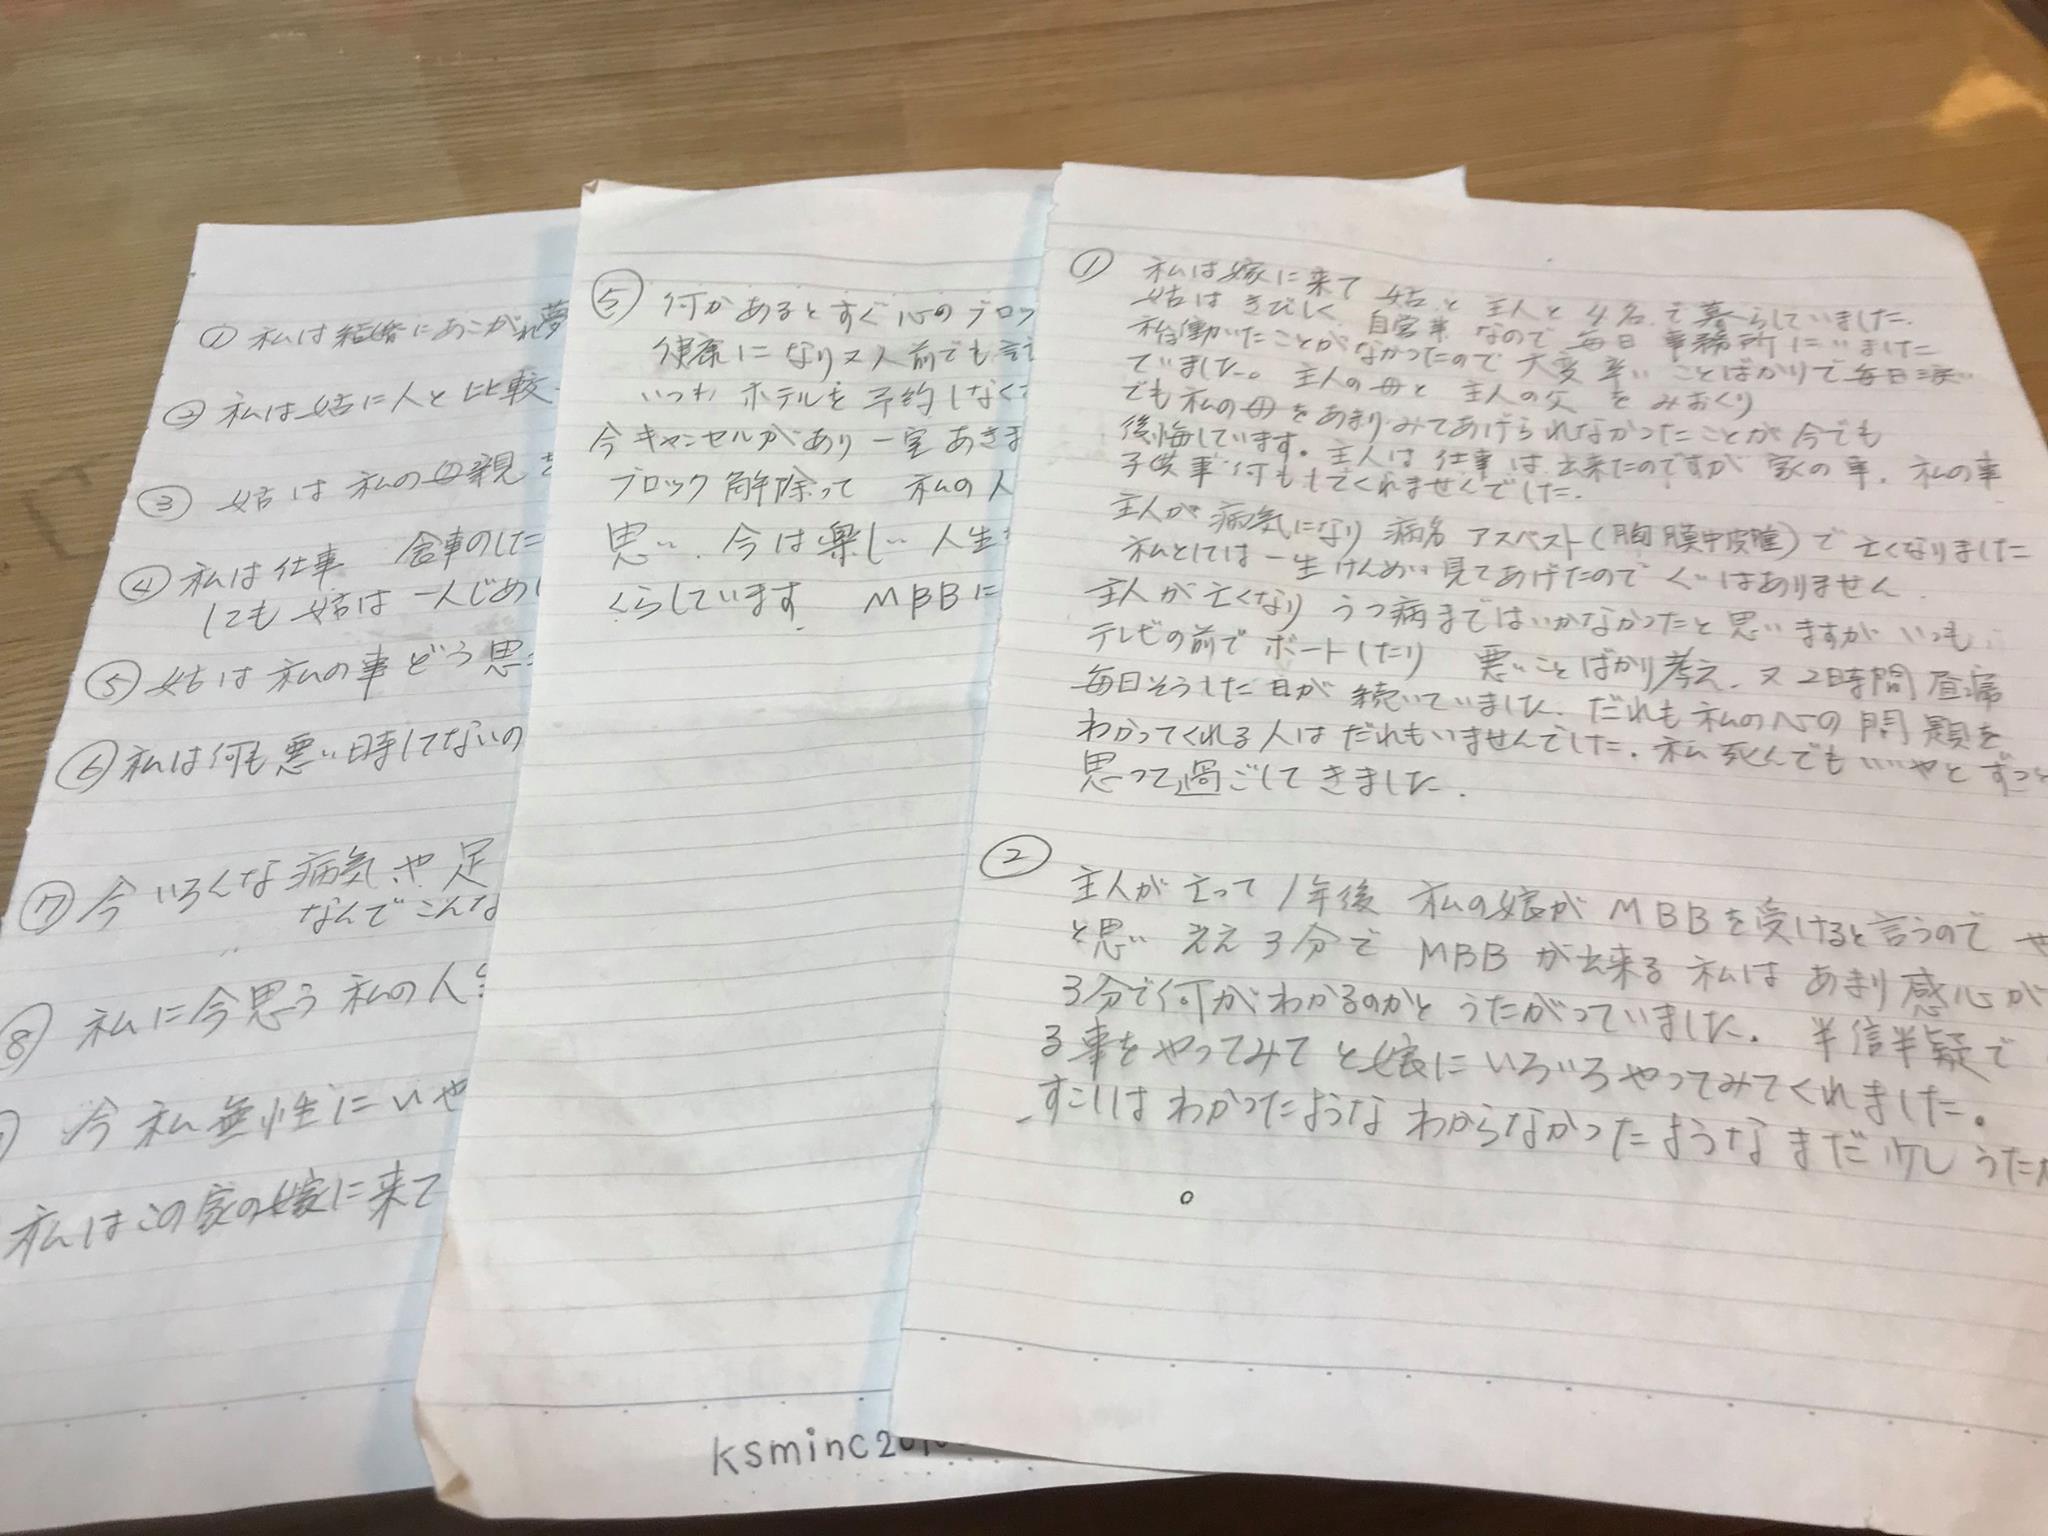 ① 私は結婚にあこがれ夢
② 私は姑に人と比較
③ 姑は私の母親を
④ 私は仕事 食事のした
しても姑は一人じめし
⑤ 姑は私の事どう思
⑥ 私は何も悪い事してないの
⑦ 今いろんな病気や足
なんでこんな
⑧ 私に今思う私の人
今私無性にいや
私はこの家の嫁に来て
⑤ 何かあるとすぐ心のブロッ
健康になり又人前でも
いつも ホテルを予約しなく
今キャンセルがあり一室あきま
ブロック解除って 私の人
思い、今は楽しい人生
くらしています MBBに
ksminc20
① 私は嫁に来て 姑と主人と4名で暮らしていました.
姑はきびしく 自営業なので毎日事務所にいました
私働いたことがなかったので大変辛いことばかりで毎日
でいました。主人の母と主人の父をみおくり
でも私の母をあまりみてあげられなかったことが今でも
後悔しています。主人は仕事は出来たのですが 家の事、私の事
子供事何もしてくれませんでした.
主人が病気になり 病名 アスベスト(胸膜中皮腫)で亡くなりました
私としては一生けんめい見てあげたのでくいはありません.
主人が亡くなり うつ病まではいかなかったと思いますがいつも
テレビの前でボートしたり 悪いことばかり考え、又2時間昼寝
毎日そうした日が続いていました.だれも私の心の問題を
わかってくれる人はだれもいませんでした.私死んでもいいやとずっと
思って過ごしてきました.
② 主人が亡って1年後 私の娘がMBBを受けると言うので や
と思い ええ3分でMBBが出来る 私はあまり感心が
3分で何がわかるのかと うたがっていました. 半信半疑で
る事をやってみてと娘にいろいろやってみてくれました。
すこしはわかったような わからなかったような まだ少しうたが
。